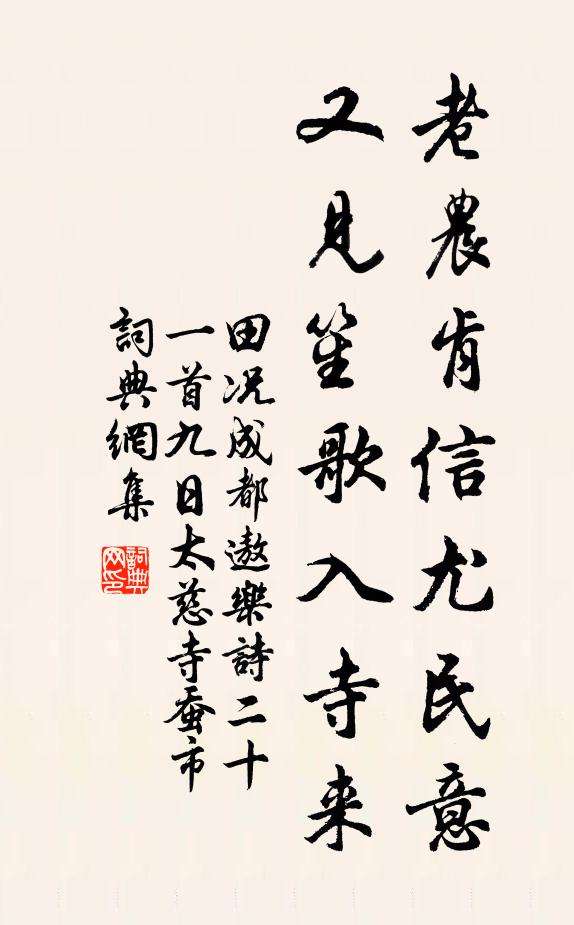 老農肯信尤民意
又見笙歌入寺来
田况成都遨樂詩二十
一首九日太慈寺蚕市
詞典網集
詞典网印